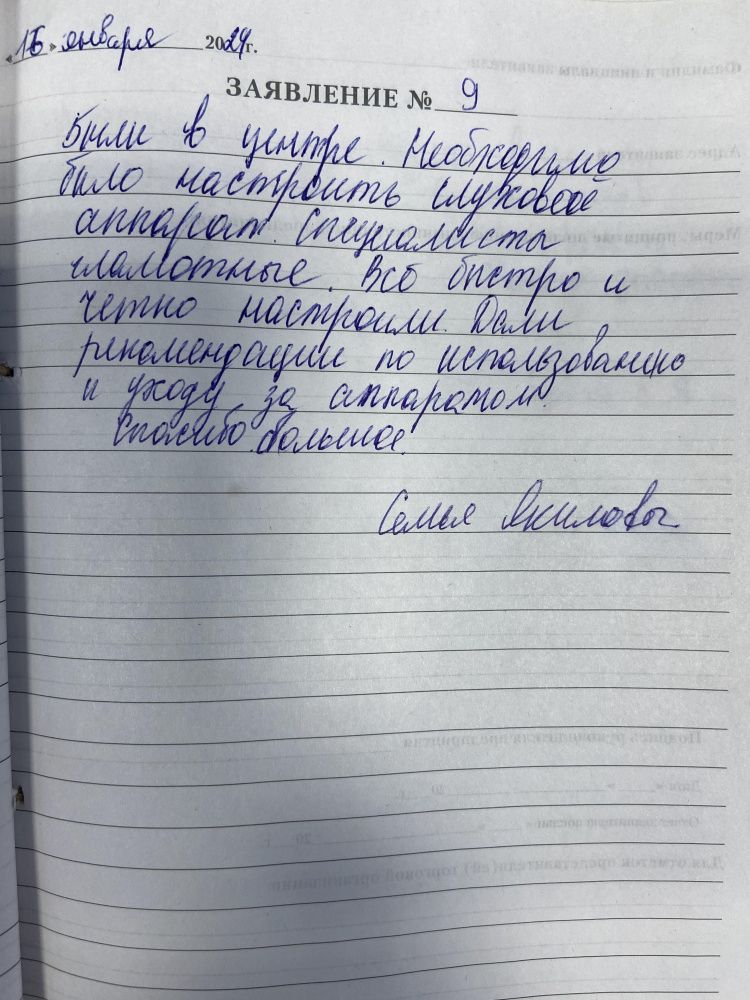 «15» января 2024 г.
ЗАЯВЛЕНИЕ № 9
Были в центре. Необходимо
было настроить слуховой
аппарат. Специалисты
грамотные. Всё быстро и
четко настроили. Дали
рекомендации по использованию
и уходу за аппаратом.
Спасибо большое.
Семья Якиловы